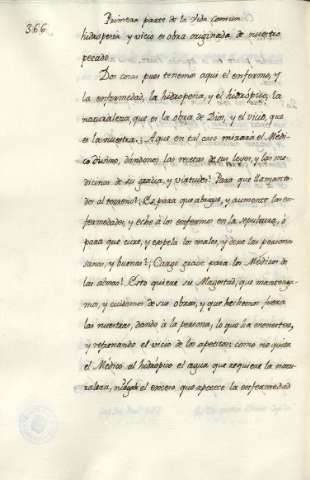 366
Primera parte de la Vida comun
hidropesia y vicio es obra originada de nuestro
pecado.
Dos cosas pues tenemos aqui el enfermo, y
la enfermedad, la hidropesia, y el hidrópico; la
naturaleza, que es la obra de Dios, y el vicio, que
es la nuestra. ¿Aque en tal caso mirará el Médi-
co Divino, dándonos las recetas de su leyes, y las me-
dicinas de su gracia, y virtudes? Para que llamaste
der al terreno? Es para que ahogue, y aumente las en-
fermedades, y eche á los enfermos en la sepultura, ó
para que cure, y expela los males, y deje las personas
sanas, y buenas? ¡Cargo grave para los Médicos de
las almas! Esto quiere su Magestad, que mantenga-
mos, y cuidemos de sus obras, y que hechemos fuera
las nuestras, dando á la persona, lo que ha menester,
y refrenando el vicio de los apetitos: como no quita
el Médico al hidrópico el agua que requiere la natu-
raleza, el exceso que apetece la enfermedad